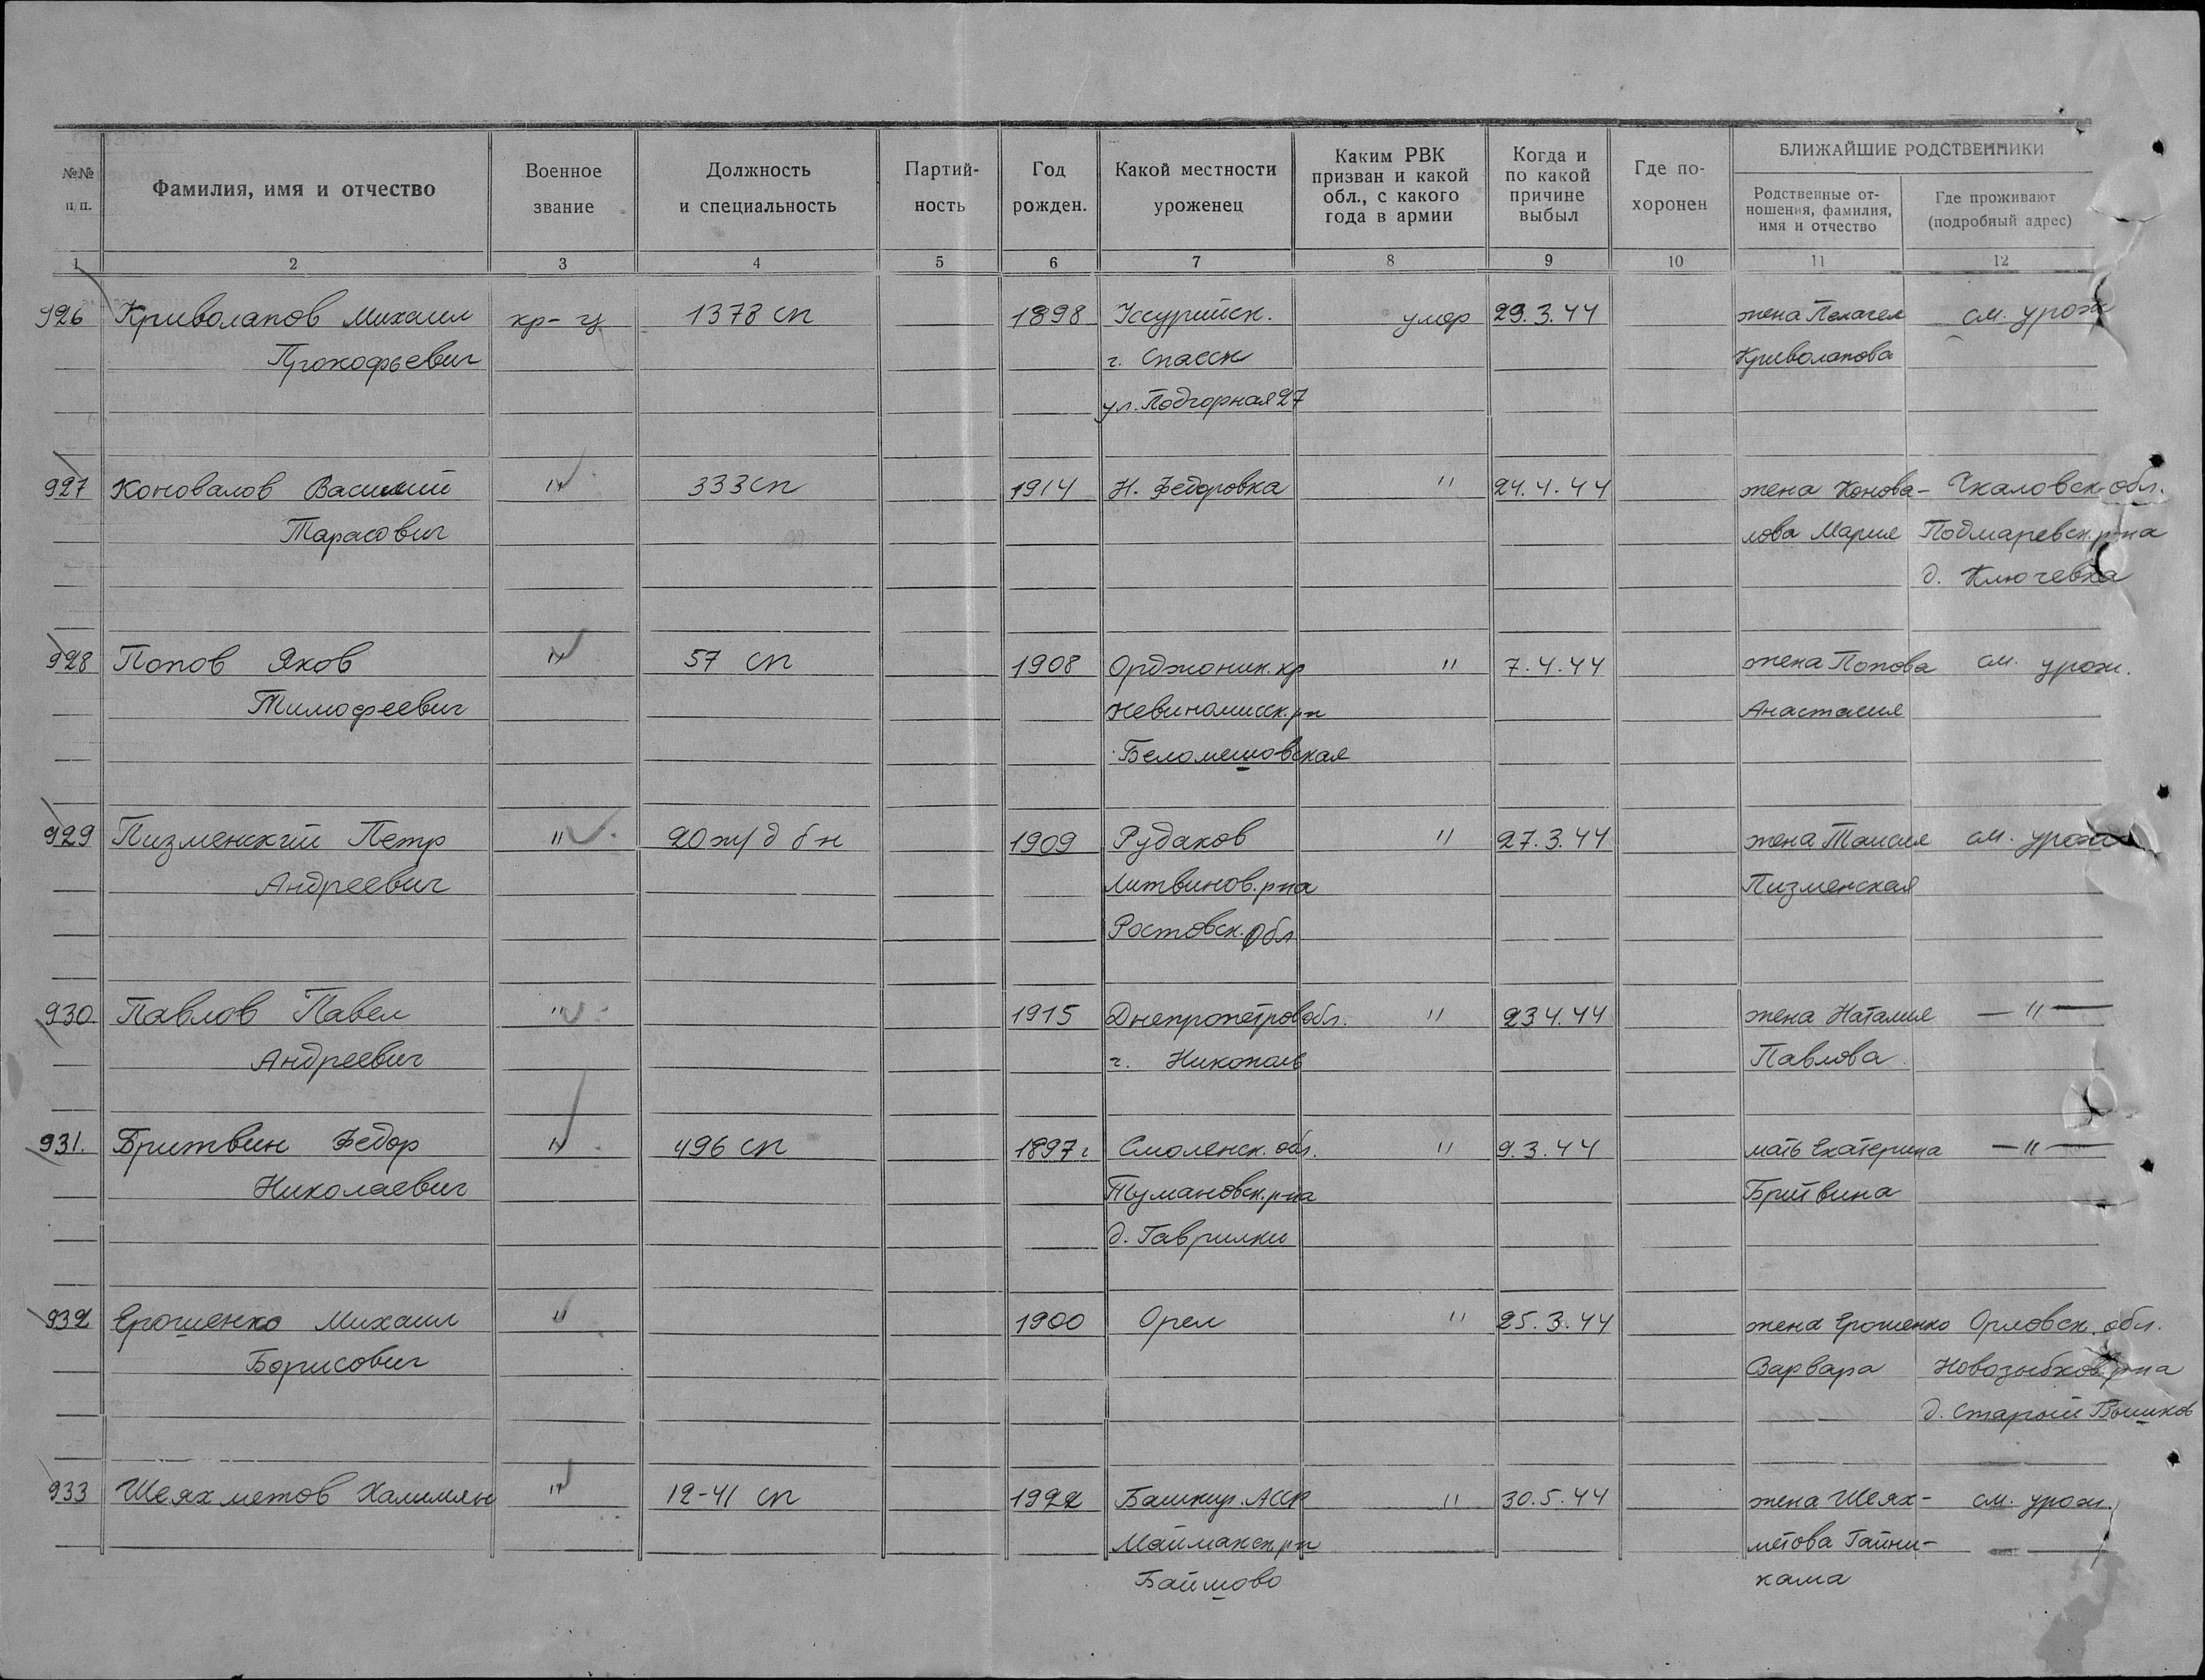 №№ п/п.
Фамилия, имя и отчество
Военное звание
Должность и специальность
Партий-
ность
Год рожден.
Какой местности уроженец
Каким РВК
призван и какой
обл., с какого
года в армии
Когда и
по какой
причине
выбыл
Где по-
хоронен
БЛИЖАЙШИЕ РОДСТВЕННИКИ
Родственные от-
ношения, фамилия,
имя и отчество
Где проживают
(подробный адрес)
1 2 3 4 5 6 7 8 9 10 11 12
926 Криволапов Михаил кр-ц 1378 сп 1898 Уссурийск. умер 29.3.44 жена Пелагея см. урож
Прокофьевич г. Спасск Криволапова
ул. Подгорная 27
927 Коновалов Василий " 333 сп 1914 Н. Федоровка " 24.4.44 жена Конова- Чкаловск. обл.
Тарасович лова Мария Подмаревск. р-на
д. Ключевка
928 Попов Яков " 57 сп 1908 Орджоник. кр " 7.4.44 жена Попова см. урож.
Тимофеевич Невиномисск. рн Анастасия
Беломешовская
929 Пизменский Петр " 20 ж/д бн 1909 Рудаков " 27.3.44 жена Таисия см. урож
Андреевич Литвинов. р-на Пизменская
Ростовск. обл
930. Павлов Павел " 1915 Днепропетров обл. " 23 4.44 жена Наталия — " —
Андреевич г. Никополь Павлова
931. Бритвин Федор " 496 сп 1897 г Смоленск. обл. " 9.3.44 мать Екатерина — " —
Николаевич Тумановск. р-на Бритвина
д. Гаврилки
932 Ерошенко Михаил " 1900 Орел " 25.3.44 жена Ерошенко Орловск. обл.
Борисович Варвара Новозыбков. р-на
д. Старый Вышков
933 Шеяхметов Халимян " 12-41 сп 1922 Башкир. АССР " 30.5.44 жена Шеях- см. урож.
Маймакск рн метова Гайни-
Байшово кама